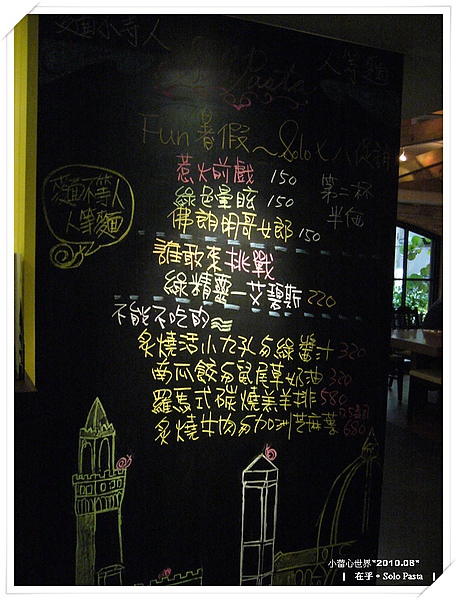 Pasta
人等麵
Fun 暑假～Solo七八優調
惹火前戲 150
第二杯
半價
綠色暈眩 150
佛朗明哥女郎 150
麵不等人
人等麵
誰敢來挑戰
綠精靈－艾碧斯 220
不能不吃的
炙燒活小九孔匆綠醬汁 320
南瓜餃匆鼠尾草奶油 320
羅馬式碳燒羔羊排 580
炙燒牛肉匆加洲芝麻葉 680
小苗心世界"2010.08"
在乎•Solo Pasta